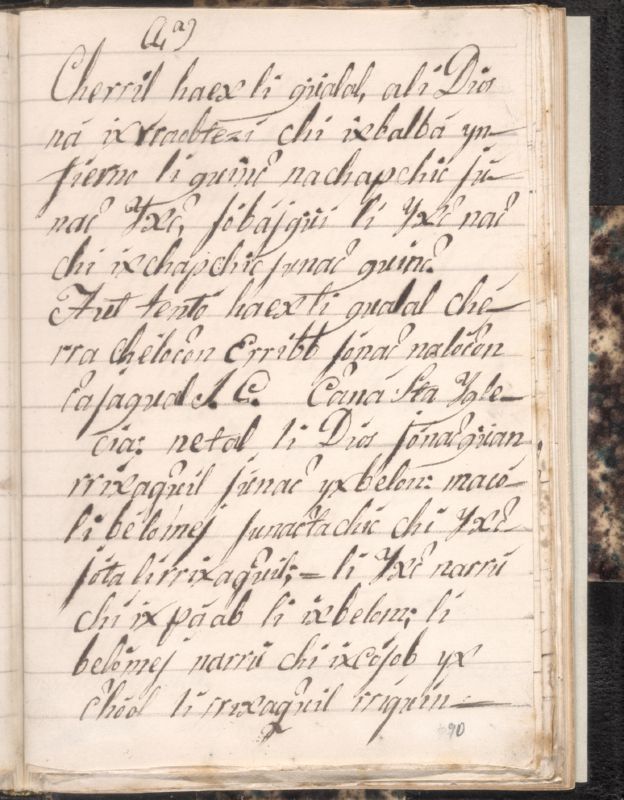 Cherril haex li gúalal, al i Dios
ná ixrraobtezi chi ixbalbá yn=
fierno li guinc̃ nachapchic ju=
nac̃ Yxc̃, jóbájguí li Yxc̃ nac̃
chi ixchapchic junac̃ guinc̃.
Aut tentó haex li gualal che=
rra chéloc̃on Erribb jónac̃ naloc̃on
c̃ajagual J. C. C̃aná Sta Ygle=
cia: netal li Dios jónac̃ guan
rrixaq̃uil júnac̃ yxbelon: macó=
li bélómej junac̃tachic chi Yxc̃
jóta li rrixaq̃uil; = li Yxc̃ narrú
chi ix páab li ixbelom; li
belómej narrú chi ixcójob yx
c̃hóól li rrixaq̃uil rriguin=
90